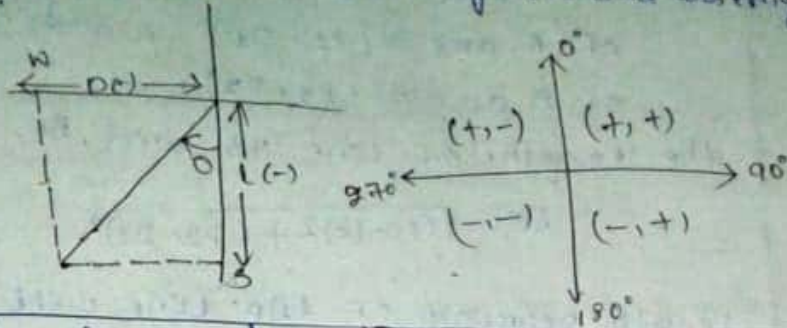 W
D(-)
θ
L (-)
S
0°
(+,-) (+,+)
270° 90°
(-,-) (-,+)
180°